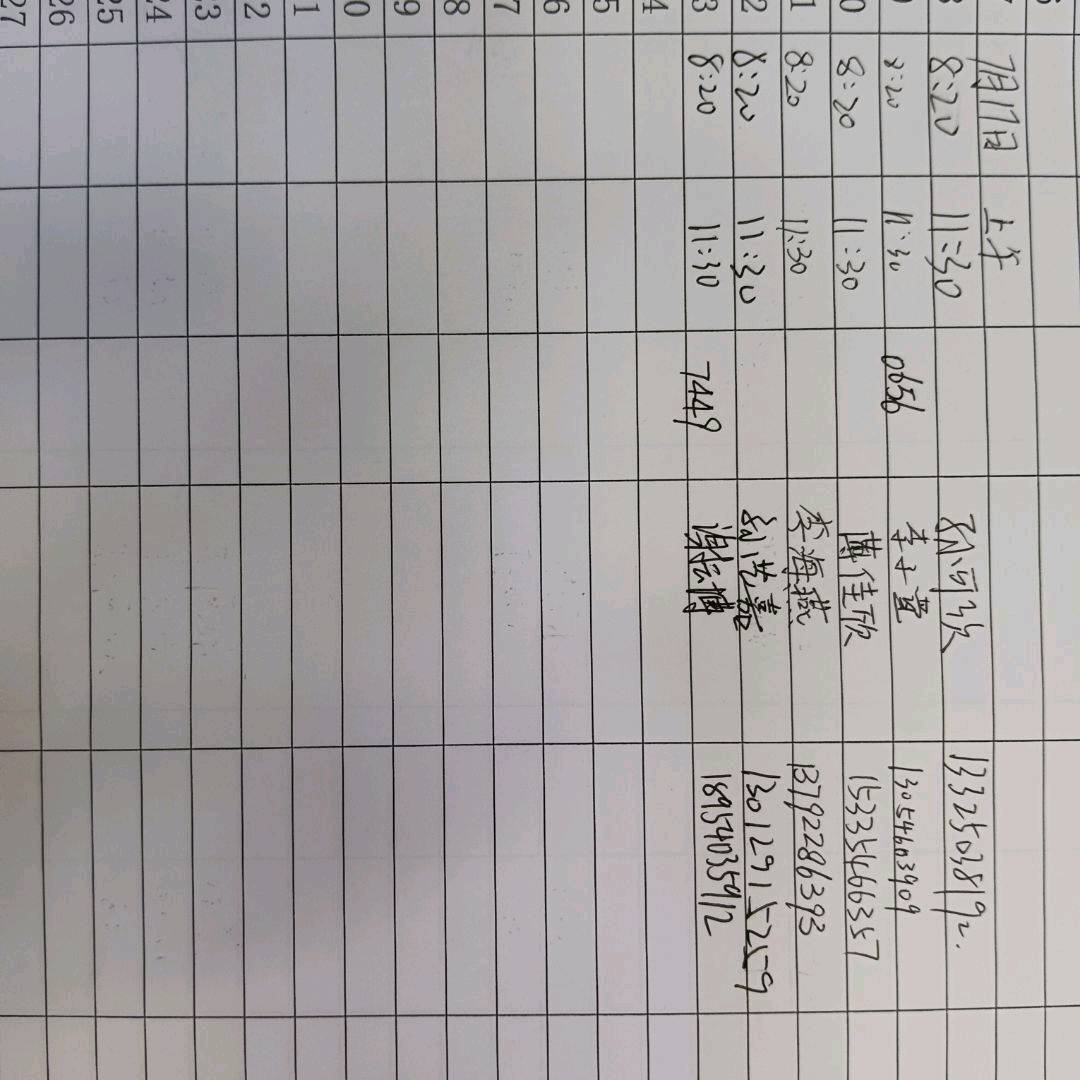 7 7月17日 上午
8 8:20 11:30 孙可欣 13325038192.
9 8:20 11:30 0656 李子萱 13054603909
0 8:20 11:30 黄佳欣 15335466357
1 8:20 11:30 李海燕 13792286393
2 8:20 11:30 嘉 13012915259
3 8:20 11:30 7449 谢 博 18954035912
4
5
6
7
8
9
0
1
2
23
24
25
26
27